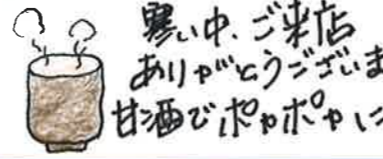 寒い中、ご来店
ありがとうございま
甘酒でポカポカに